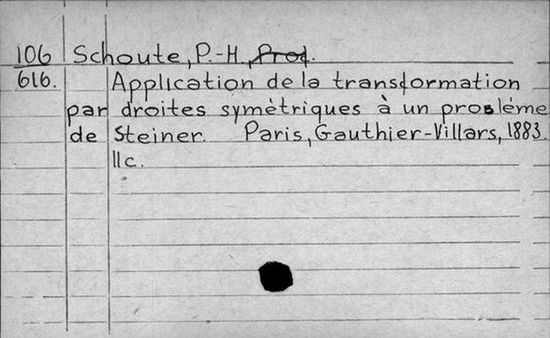 106 Schoute, P.-H, Prof.
616. Application de la transformation
par droites symètriques à un problème
de Steiner. Paris, Gauthier-Villars, 1883.
11c.